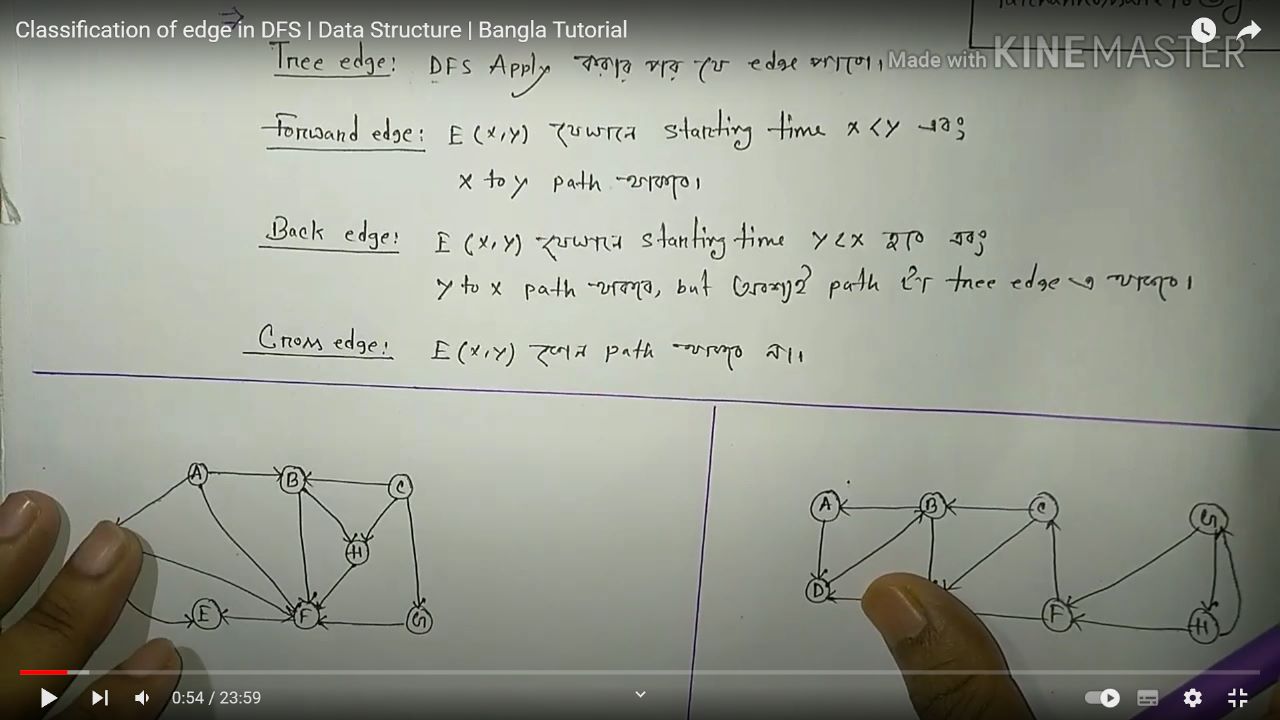 Classification of edge in DFS | Data Structure | Bangla Tutorial
Made with KINEMASTER
Tree edge: DFS Apply করার পর যে edge থাকে।
Forward edge: E (x,y) যেখানে starting time x<y এবং
x to y path থাকবে।
Back edge: E (x,y) যেখানে starting time y<x হবে এবং
y to x path থাকবে, but অবশ্যই path টা tree edge এ থাকবে।
Cross edge: E (x,y) কোন path থাকবে না।
A B C
H
E F G
A B C G
D F H
0:54 / 23:59